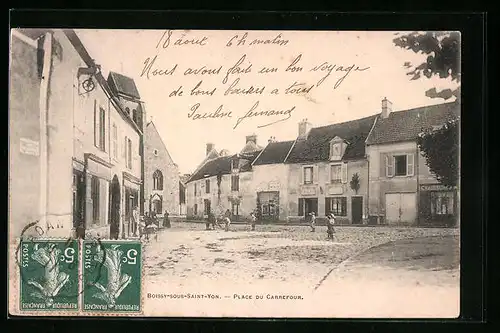 18 aout 6h matin
Nous avons fait un bon voyage
de bons baisers a tous
Pauline
BOISSY-SOUS-SAINT-YON. — PLACE DU CARREFOUR.
POSTES
5c
RÉPUBLIQUE FRANÇAISE
POSTES
5c
RÉPUBLIQUE FRANÇAISE